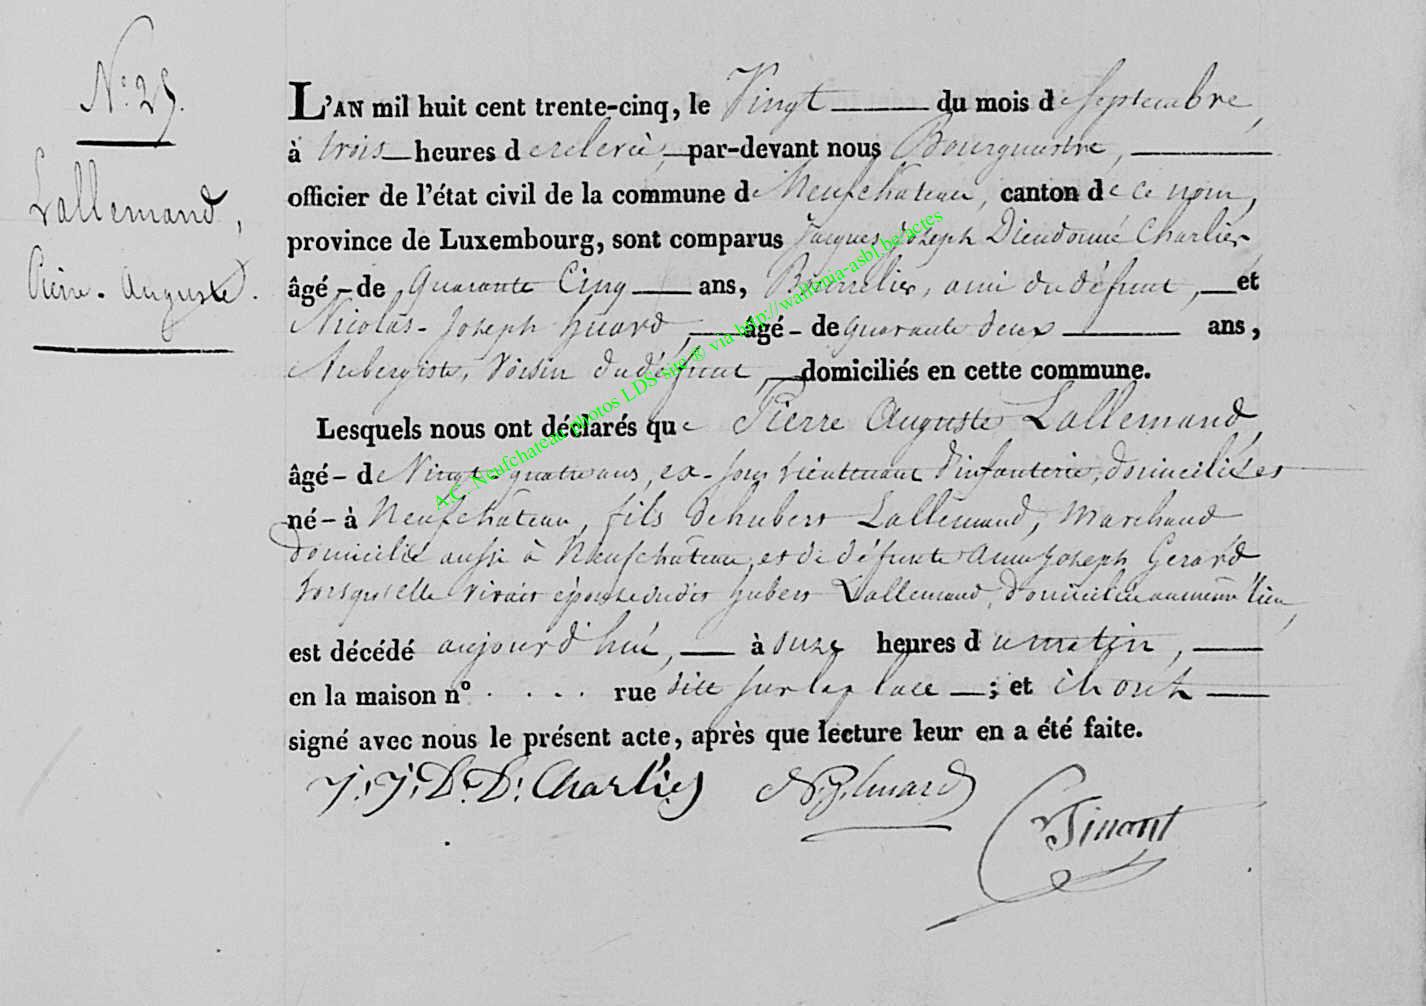 N.° 25.
Lallemand,
Pierre-Auguste.
L'AN mil huit cent trente-cinq, le Vingt du mois de Septembre,
à trois heures de relevée, par-devant nous Bourguestre,
officier de l'état civil de la commune de Neufchateau, canton de ce nom,
province de Luxembourg, sont comparus Jacques Joseph Dieudonné Charlier
âgé - de Quarante Cinq ans, ami du défunt, et
Nicolas-Joseph huard, âgé - de quarante deux ans,
Aubergiste, Voisin du défunt, domiciliés en cette commune.
Lesquels nous ont déclarés que Pierre Auguste Lallemand,
âgé - de Vingt-quatre ans, ex-sous lieutenant d'infanterie, domicilié et
né - à Neufchâteau, fils de hubert Lallemand, Marchand
domicilié aussi à Neufchâteau, et de défunte Anne Joseph Gerard
lorsqu'elle vivait épouse dudit hubert Lallemand, domiciliée au même lieu,
est décédé aujourd'hui, à onze heures du matin,
en la maison n° . . . . rue dite sur la place ; et ils ont
signé avec nous le présent acte, après que lecture leur en a été faite.
J. J. D. D. Charlier N. J. huard
Tinant
A.C. Neufchateau photos LDS site © via http://wallonia-asbl.be/actes